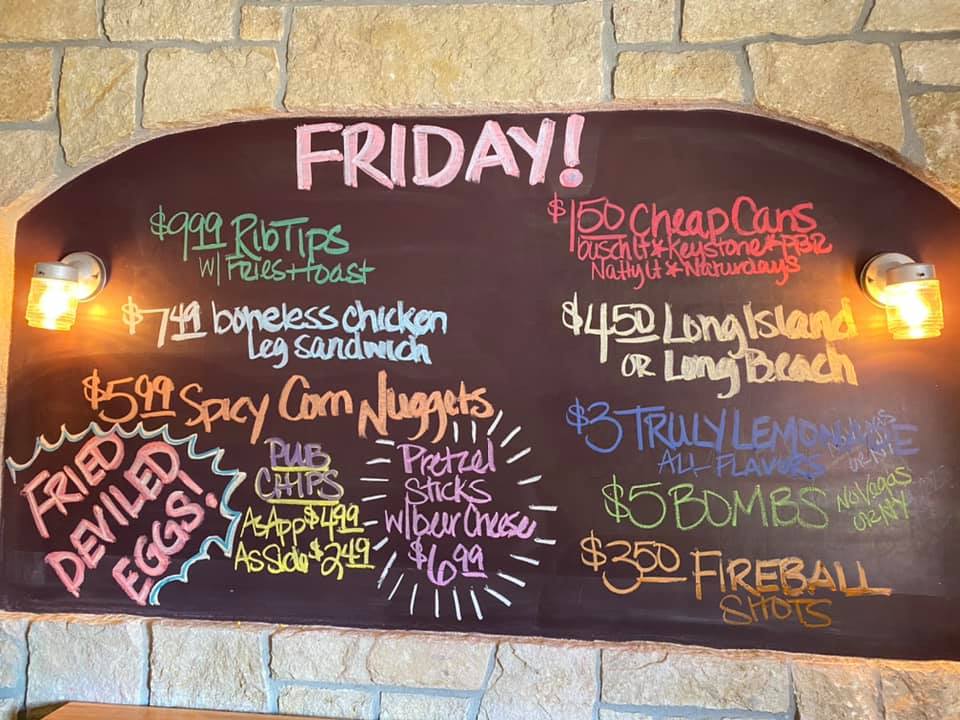 FRIDAY!
$9.99 RibTips
w/ Fries + toast
$7.49 boneless chicken
Leg Sandwich
$5.99 Spicy Corn Nuggets
FRIED
DEVILED
EGGS!
PUB
CHIPS
As App $4.99
As Side $2.49
Pretzel
Sticks
w/ beer Cheese
$6.99
$1.50 Cheap Cans
busch Lt * Keystone * PBR
Natty Lt * Naturdays
$4.50 Long Island
OR Long Beach
$3 TRULY LEMONADE
ALL FLAVORS
$5 BOMBS No Vegas
or NY
$3.50 FIREBALL
SHOTS